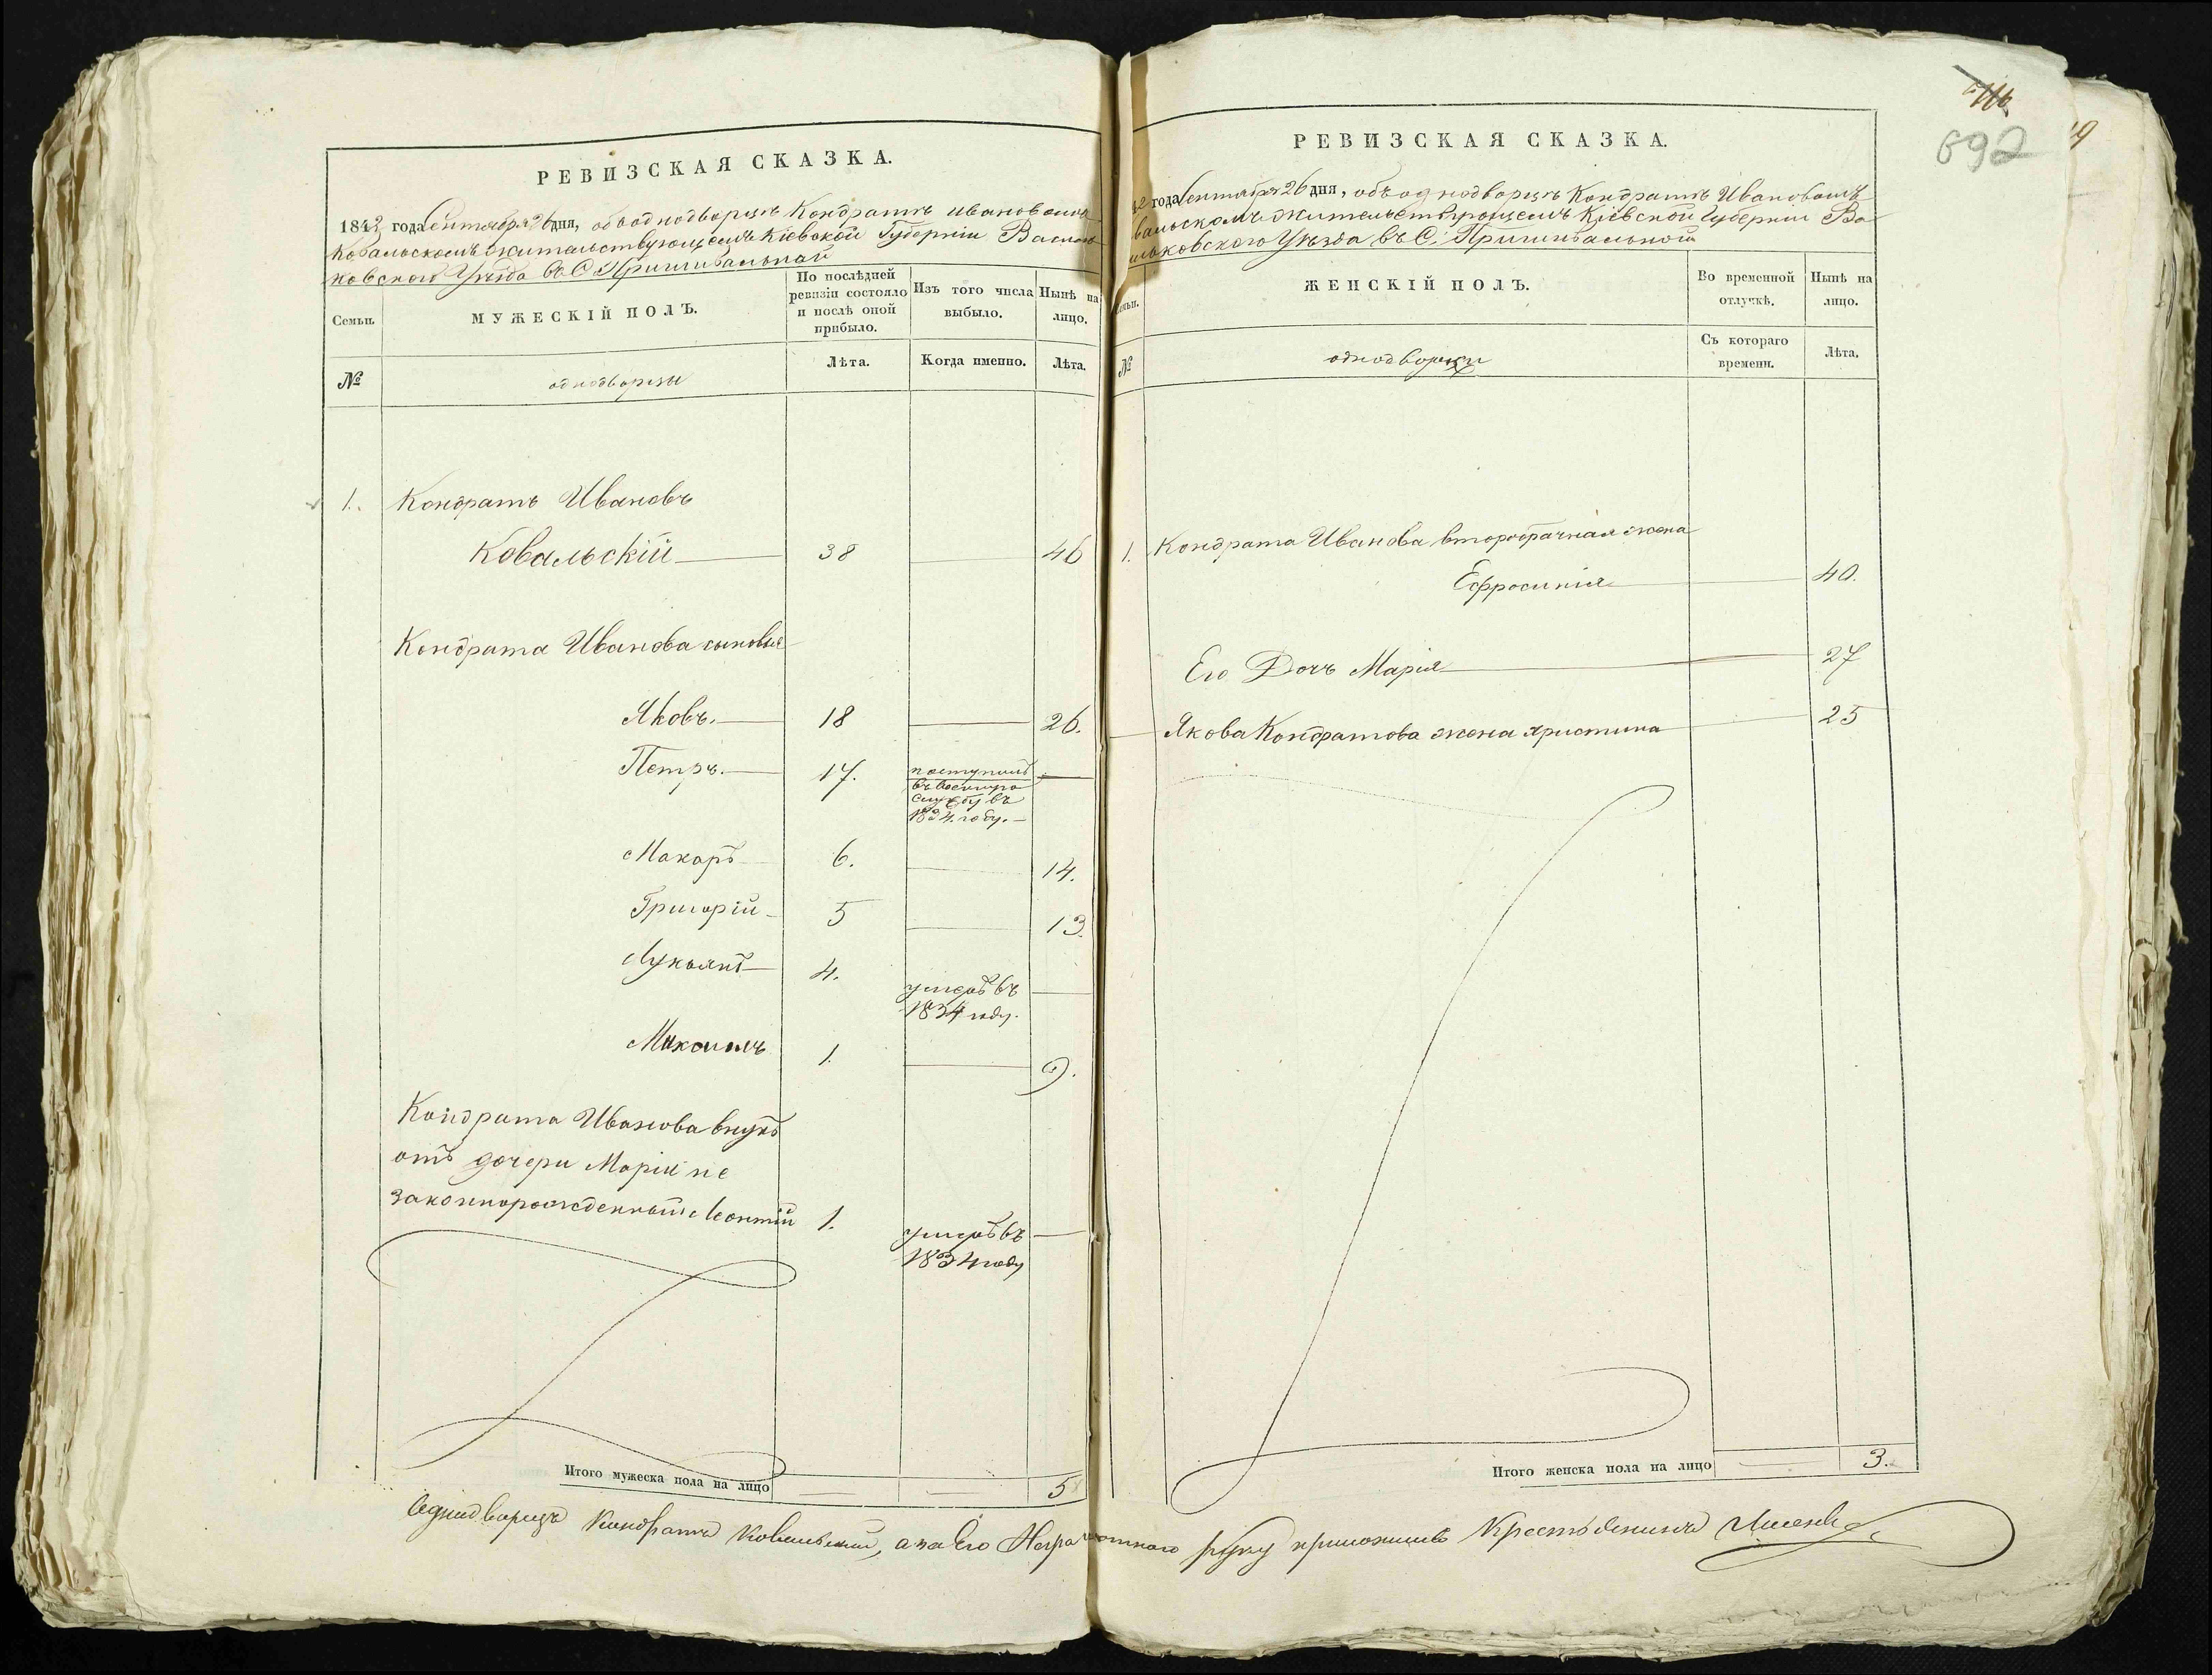 РЕВИЗСКАЯ СКАЗКА.
1842 года Сентября 26 дня, объ однодворцѣ Кондратѣ Ивановомъ
Ковальскомъ жительствующемъ Кіевской Губерніи Василь-
ковскаго Уѣзда въ С. Пришивальной
Семьи.
МУЖЕСКІЙ ПОЛЪ.
По послѣдней
ревизіи состояло
и послѣ оной
прибыло.
Изъ того числа
выбыло.
Нынѣ на
лицо.
№
однодворцы
Лѣта.
Когда именно.
Лѣта.
1. Кондратъ Ивановъ
Ковальскій 38 46
Кондрата Иванова сыновья
Яковъ. 18 26.
Петръ. 17. поступилъ
въ военную
службу въ
1834. году.
Макаръ 6. 14.
Григорій 5 13.
Лукьянъ 4. умеръ въ
1834 году.
Максимъ 1. 9.
Кондрата Иванова внукъ
отъ дочери Маріи не
законнорожденный Леонтій 1. умеръ въ
1834 году
Итого мужеска пола на лицо 5
116
692
19
РЕВИЗСКАЯ СКАЗКА.
42 года Сентября 26 дня, объ однодворцѣ Кондратѣ Ивановомъ
вальскомъ жительствующемъ Кіевской Губерніи Ва-
ильковского Уѣзда въ С. Пришивальной
Семьи.
ЖЕНСКІЙ ПОЛЪ.
Во временной
отлучкѣ.
Нынѣ на
лицо.
№
однодворки
Съ котораго
времени.
Лѣта.
1. Кондрата Иванова второбрачная жена
Ефросинія 40.
Его Дочь Марія 27
Якова Кондратова жена Христина 25
Итого женска пола на лицо 3.
Однодворецъ Кондратъ Ковальскій, а за Его Неграмотнаго руку приложилъ Крестьянинъ